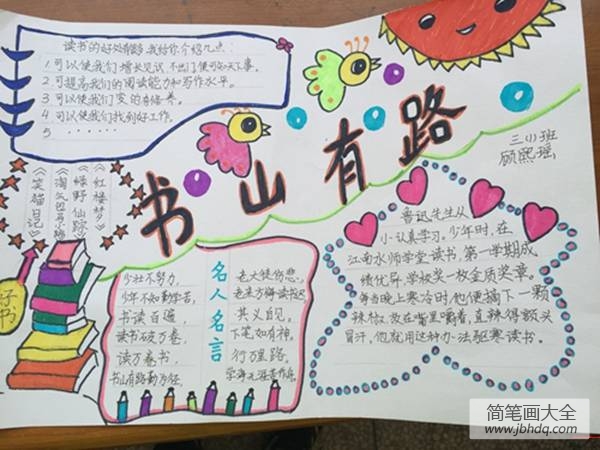 读书的好处有够多,我给你介绍几点:
1.可以使我们增长见识,不出门便可知天下事。
2.可提高我们的阅读能力和写作水平。
3.可以使我们变的有修养。
4.可以使我们找到好工作。
5 ······
书山有路
三(1)班
顾熙瑶
《红楼梦》
《绿野仙踪》
《淘气包马小跳》
《笑猫日记》
好书
名人名言
少壮不努力,
老大徒伤悲。
少年不知勤学苦,
老来方悔读书迟
书读百遍,
其义自见。
读书破万卷,
下笔如有神。
读万卷书,
行万里路。
书山有路勤为径,
学海无涯苦作舟。
鲁迅先生从
小认真学习。少年时,在
江南水师学堂读书,第一学期成
绩优异,学校奖一枚金质奖章。
每当晚上寒冷时,他便摘下一颗
辣椒,放在嘴里嚼着,直辣得额头
冒汗。他就用这种办法驱寒读书。
简笔画大全
www.jbhdq.com